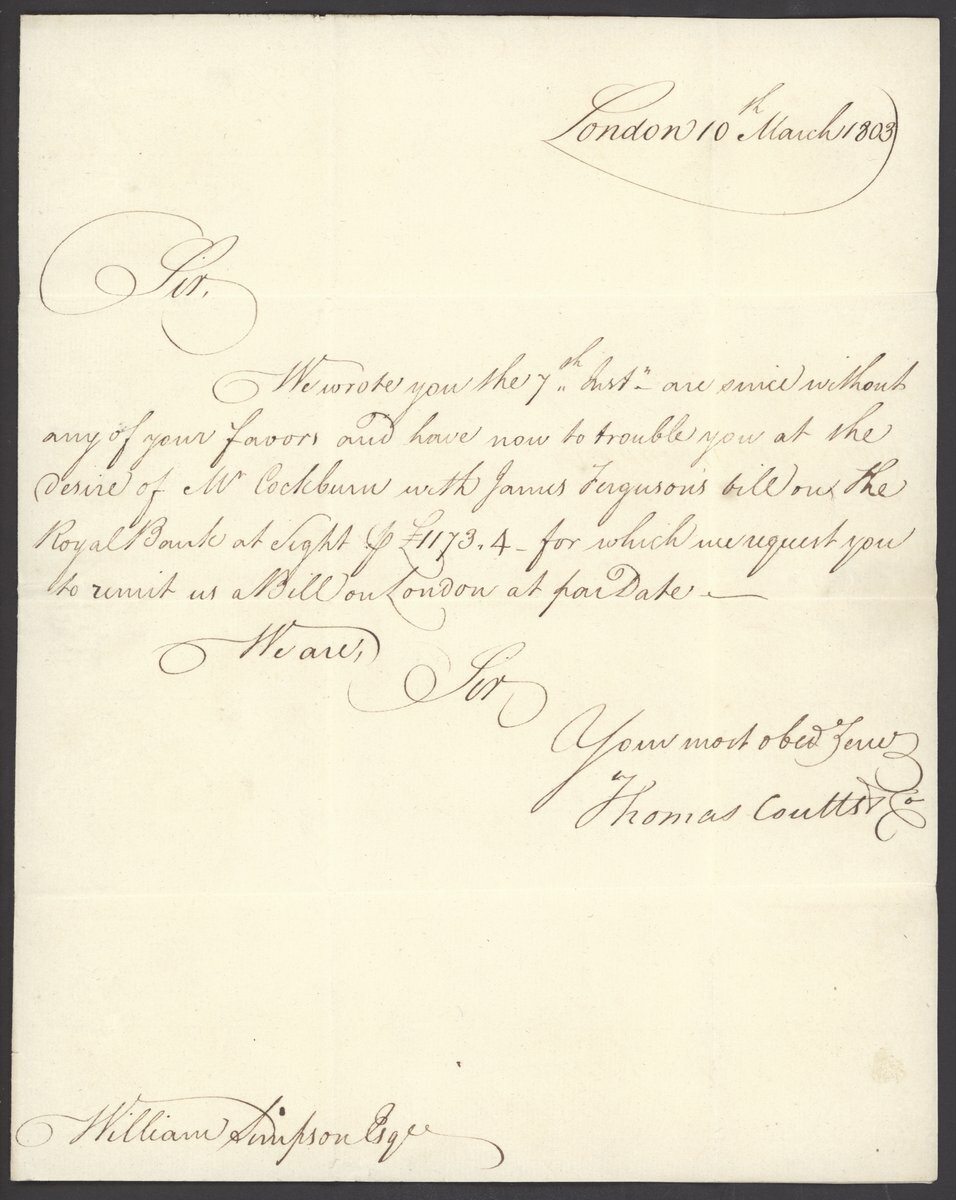 London 10th March 1803
Sir,
We wrote you the 7th Inst" are since without
any of your favors and have now to trouble you at the
desire of Mr Cockburn with James Ferguson's bill on the
Royal Bank at Sight ⅌ £1173.4 - for which we request you
to remit us a Bill on London at par Date —
We are,
Sir
Your most obed Serv
Thomas Coutts & Co
William Simpson Esqre